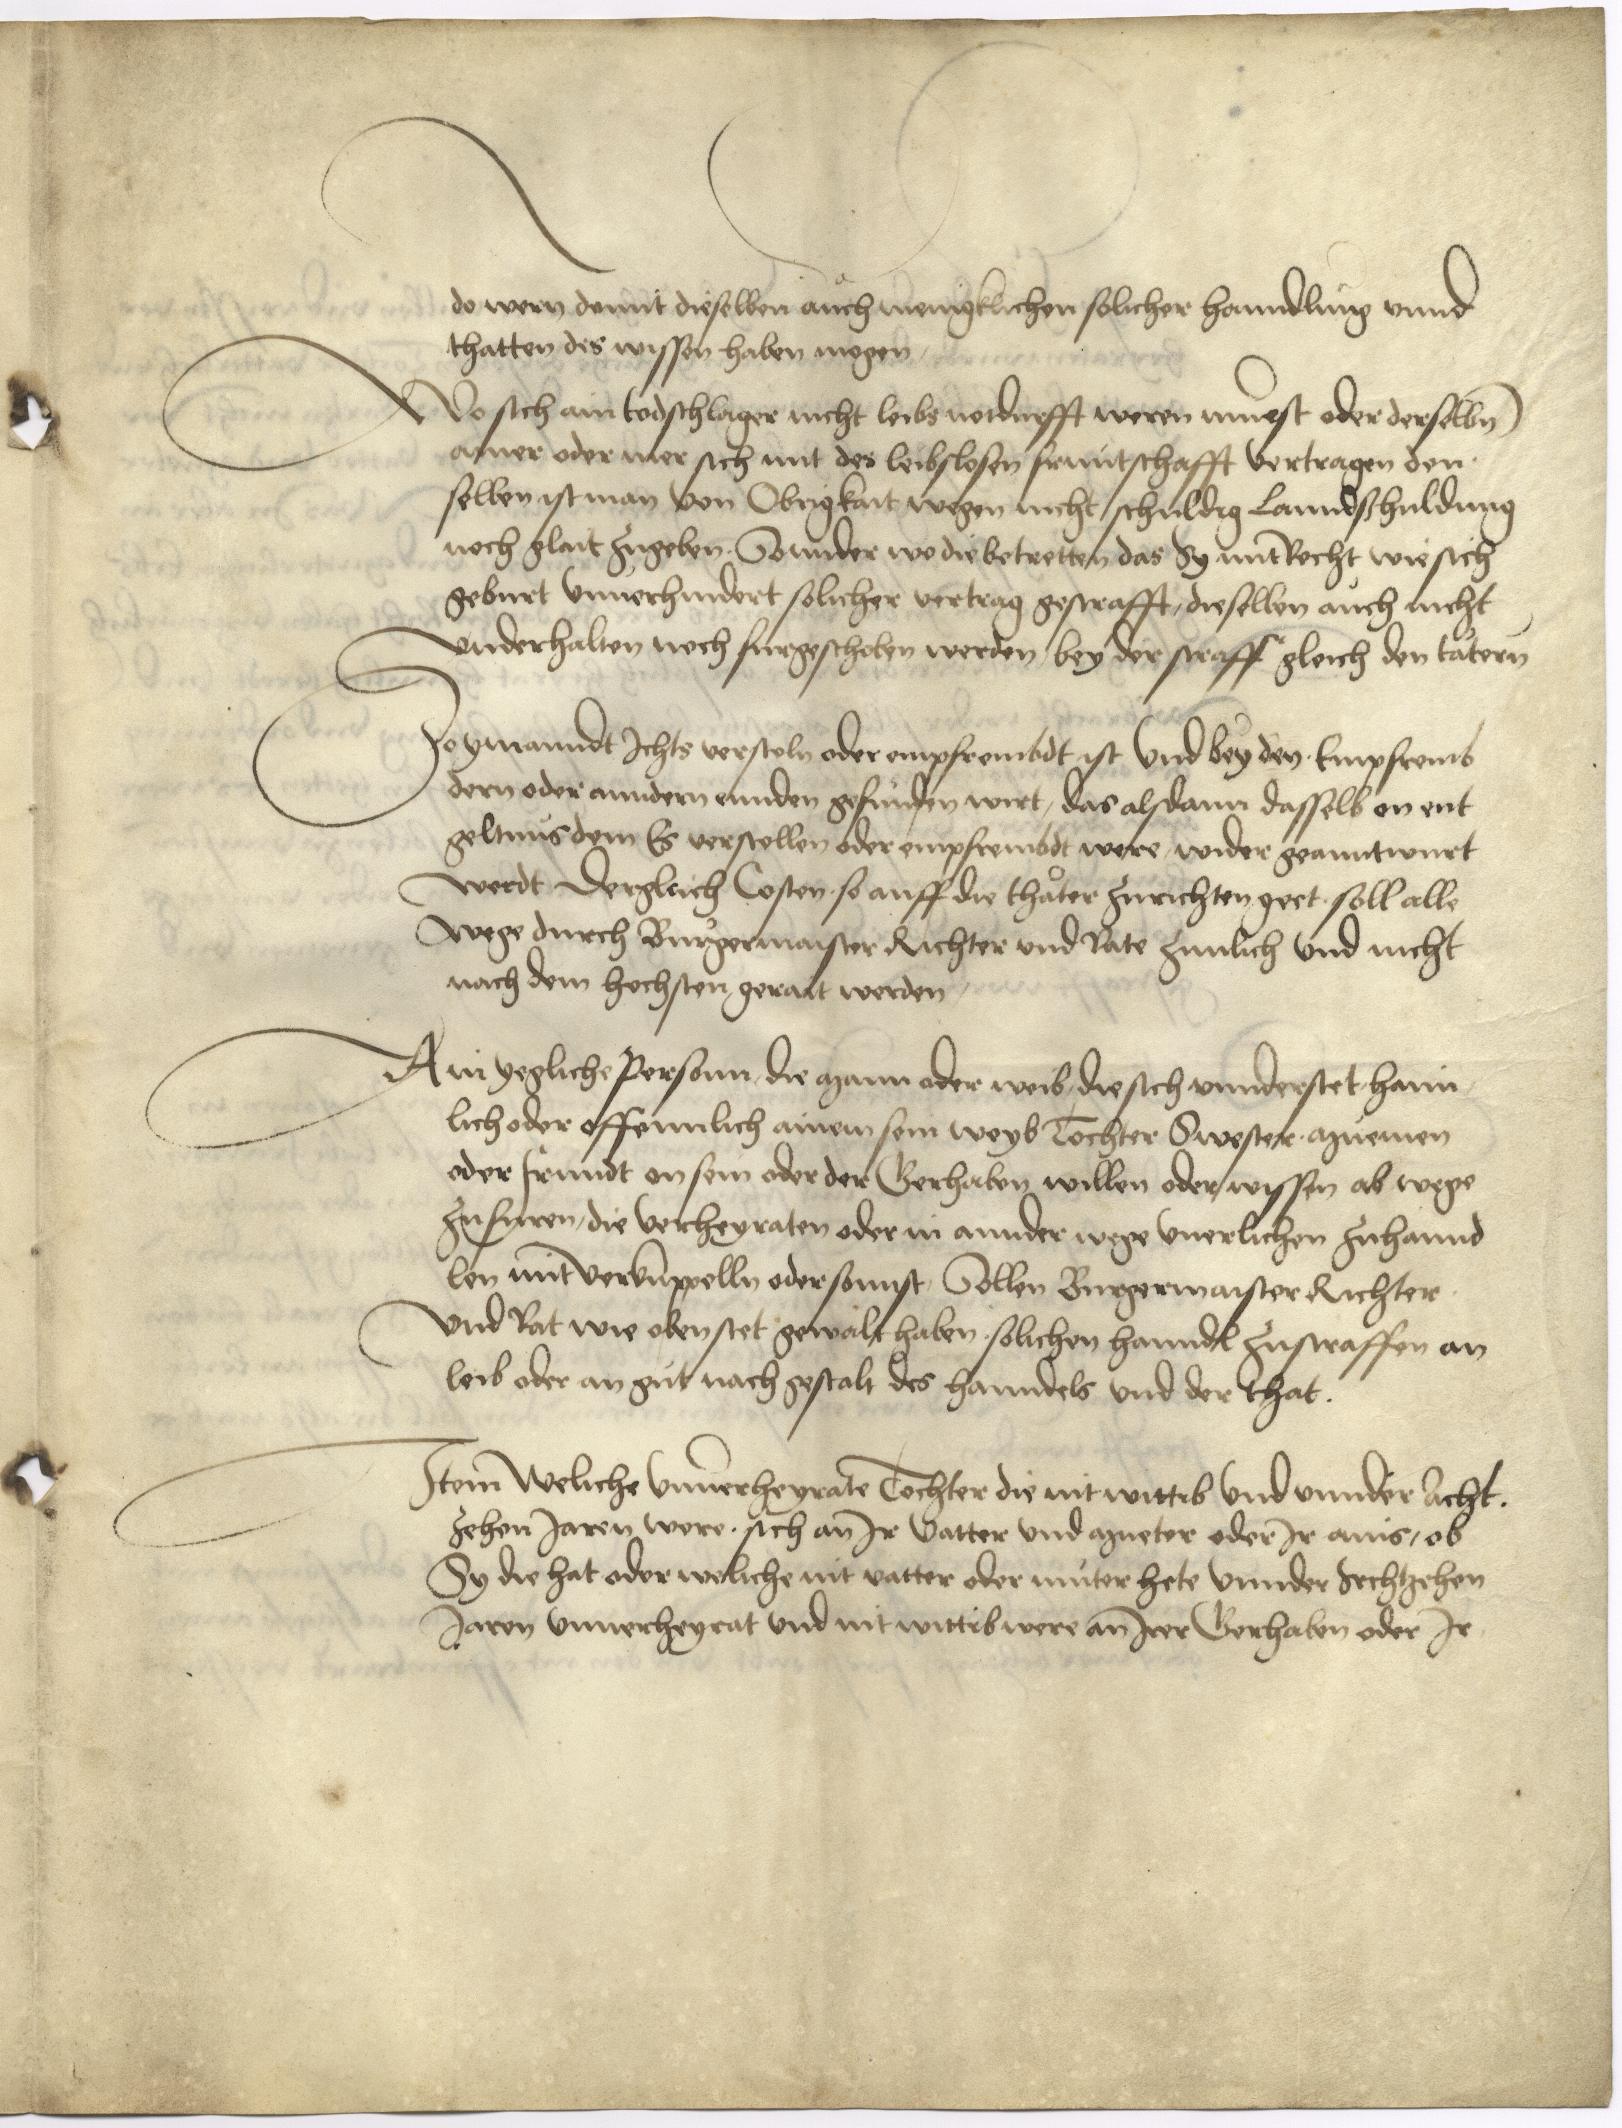 do wern damit dieselben auch menigklichen solicher hanndlung vnnd
thatten des wissen haben mogen
Wo sich ain todschlager nicht leibs notdurfft weren muest oder derselbn
ainer oder mer sich mit des leibslosen fruntschafft vertragen den
selben ist man von Obrigkait wegen nicht schuldig Lanndßhuldung
noch glait zugeben. Sonnder wo die betretten das Sy mit Recht wie sich
geburt vnuerhindert solicher vertrag gestrafft, dieselben auch nicht
vnderhalten noch furgeschoben werden bey der straff gleich den tätern
So ymanndt Ichts verstoln oder empfrembdt ist Vnd bey den Empfremb
dern oder anndern ennden gefunden wirt, das alsdann dasselb on ent
geltnus dem Es verstollen oder empfrembdt were wider geanntwurt
werdt Dergleich Costen so auff die thäter zurichten geet soll alle
wege durch Burgermaister Richter vnd Rate zimlich vnd nicht
nach dem hochsten gerait werden
Ain yegliche Person, die Mann oder weib, die sich vnnderstet haim
lich oder offennlich ainem sein weyb Tochter Swester Muemen
oder frundt on sein oder der Gerhaben willen oder wissen ab wege
zufuren, die verheyraten oder in annder wege vnerlichen zuhannd
len mit verkuppelln oder sonnst, Sollen Burgermaister Richter
Vnd Rat wie oben stet gewalt haben solichen hanndl zustraffen an
leib oder an gut nach gestalt des hanndels vnd der that.
Item Weliche vnuerheyrate Tochter die nit wittib vnd vnnder Acht.
zehen Jaren were. sich an Ir Vatter vnd Mueter oder Ir ains, ob
Sy die hat oder weliche nit vatter oder muter hete Vnnder Sechtzehen
Jaren vnuerheyrat vnd nit wittib were an Irer Gerhaben oder Ir